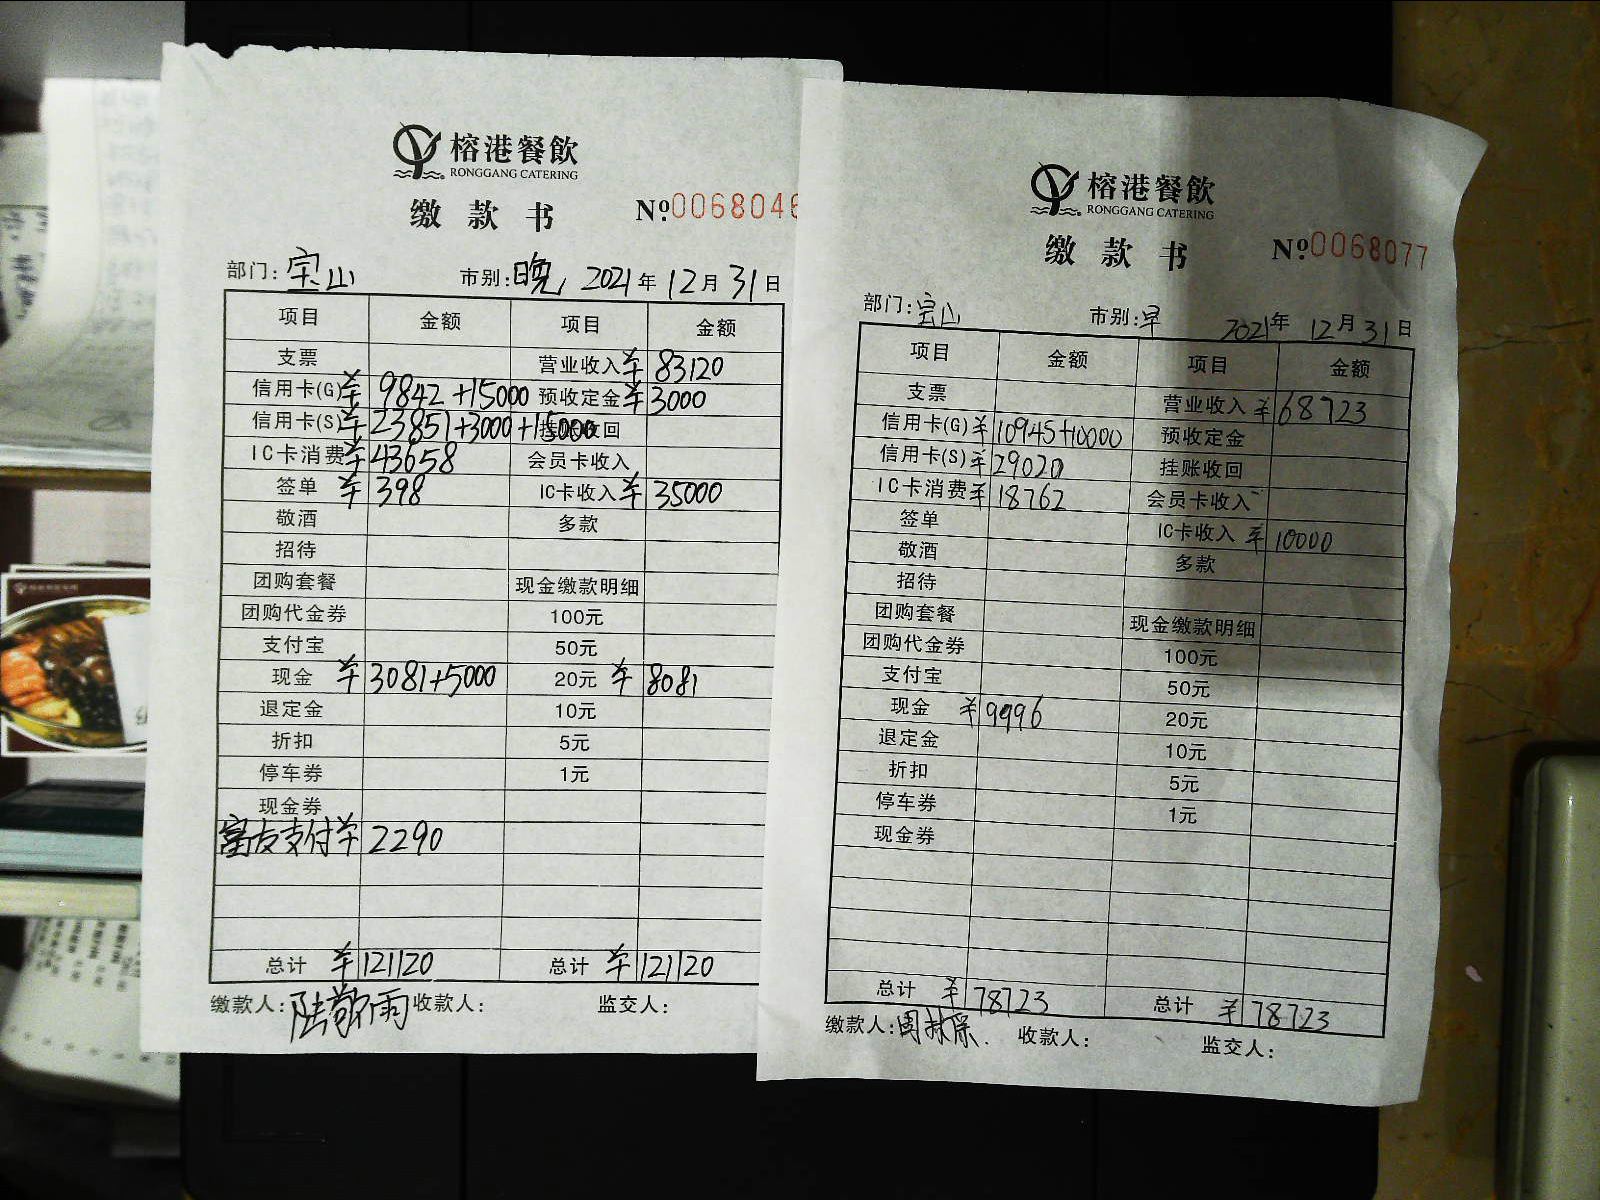 榕港餐飲
RONGGANG CATERING
缴款书 №0068046
部门: 宝山 市别: 晚 2021年12月31日
项目 金额 项目 金额
支票 营业收入 ¥83120
信用卡(G) ¥9842+15000 预收定金 ¥3000
信用卡(S) ¥23851+3000+15000 挂账收回
IC卡消费 ¥43658 会员卡收入
签单 ¥398 IC卡收入 ¥35000
敬酒 多款
招待
团购套餐 现金缴款明细
团购代金券 100元
支付宝 50元
现金 ¥3081+5000 20元 ¥8081
退定金 10元
折扣 5元
停车券 1元
现金券
富友支付 ¥2290
总计 ¥121120 总计 ¥121120
缴款人: 陆敬雨 收款人: 监交人:
榕港餐飲
RONGGANG CATERING
缴款书 №0068077
部门: 宝山 市别: 早 2021年12月31日
项目 金额 项目 金额
支票 营业收入 ¥68723
信用卡(G) ¥10945+10000 预收定金
信用卡(S) ¥29020 挂账收回
IC卡消费 ¥18762 会员卡收入
签单 IC卡收入 ¥10000
敬酒 多款
招待
团购套餐 现金缴款明细
团购代金券 100元
支付宝 50元
现金 ¥9996 20元
退定金 10元
折扣 5元
停车券 1元
现金券
总计 ¥78723 总计 ¥78723
缴款人: 收款人: 监交人: